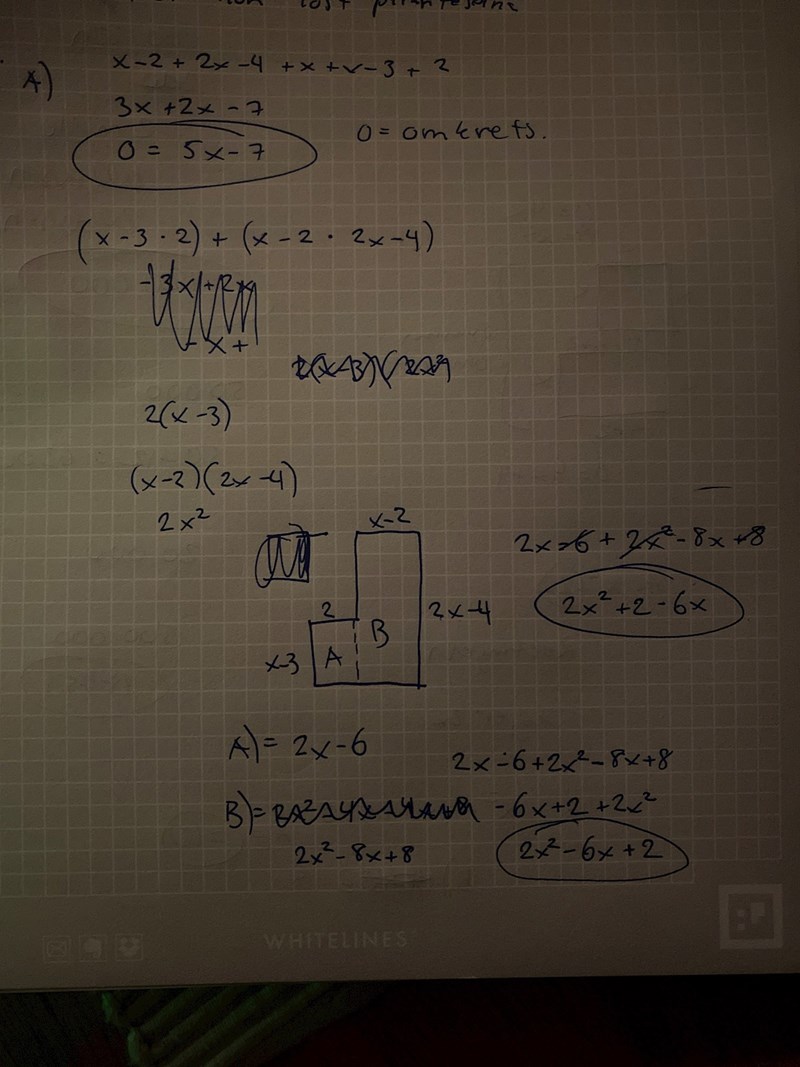 A)
x-2 + 2x-4 + x + x-3 + 2
3x + 2x - 7
O = 5x-7
O = omkrets.
(x-3·2) + (x-2 · 2x-4)
2(x-3)
(x-2)(2x-4)
2x²
x-2
2x-6 + 2x²-8x+8
2x-4
2x²+2-6x
2
B
x-3
A
A) = 2x-6
2x-6+2x²-8x+8
B) =
-6x+2+2x²
2x²-8x+8
2x²-6x+2
WHITELINES